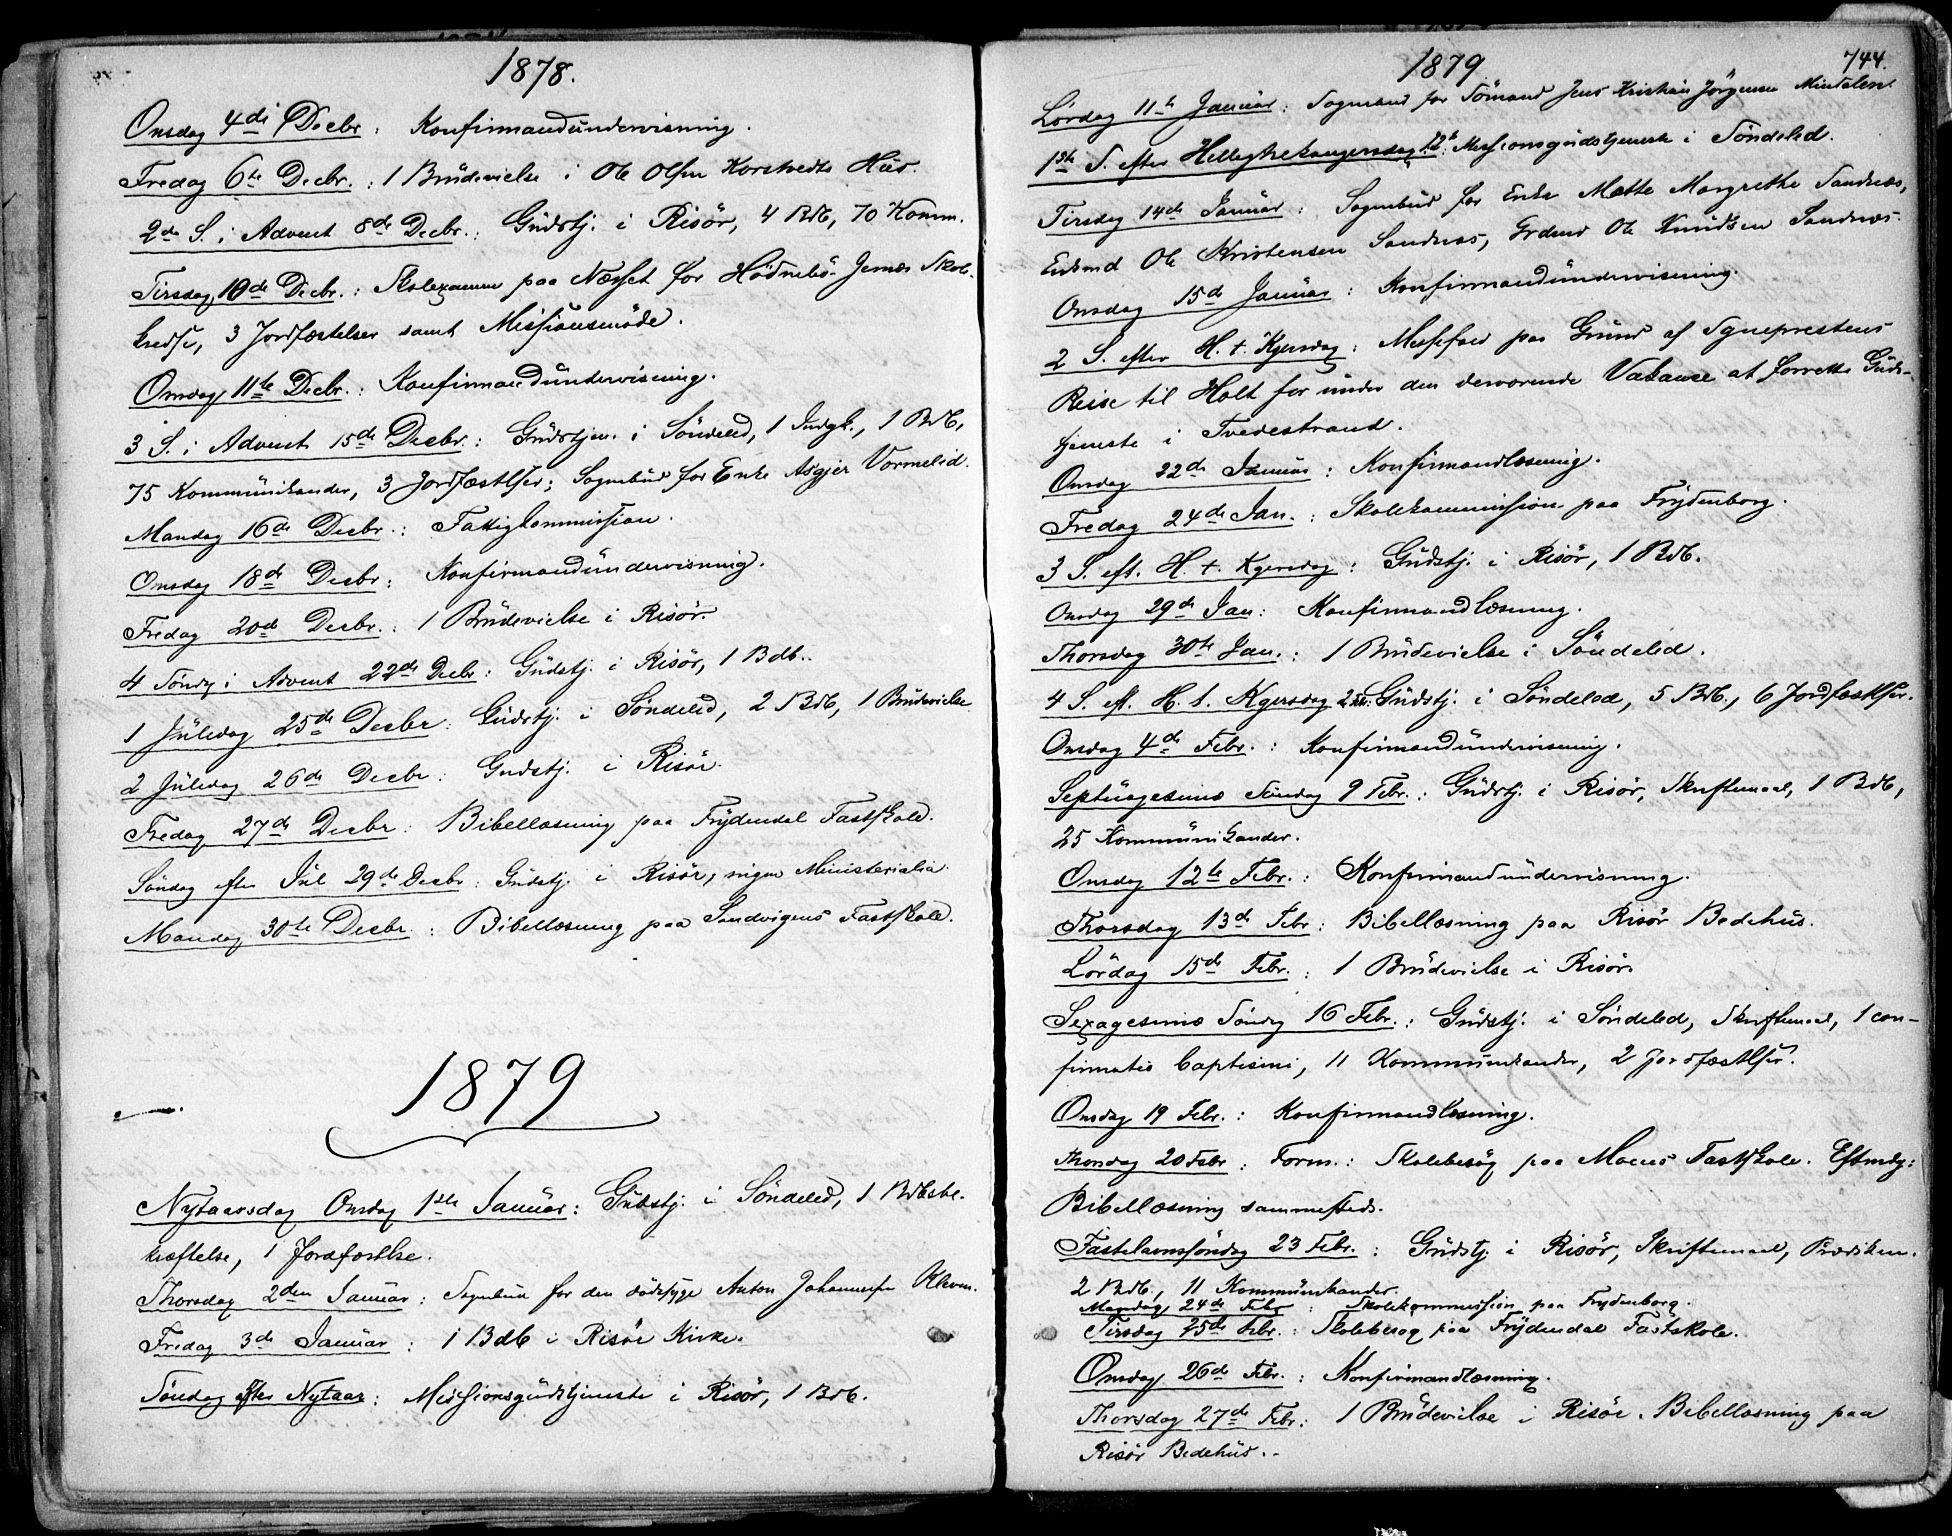 1878.
Onsdag 4de Decbr: Konfirmandundervisning.
Fredag 6te Decbr.: 1 Brudevielse i Ole Olsen Korstvedts Hus.
2den S. i Advent 8de Decbr.: Gudstj. i Risör, 4 Bdb, 70 Komm.
Tirsdag 10de Decbr.: Skolexamen paa Næsset for Hödnebö-Jernæs Skole-
kreds, 3 Jordfæstelser samt Missionsmöde.
Onsdag 11te Decbr.: Konfirmandundervisning.
3 S. i Advent 15de Decbr.: Gudstjen. i Söndeled, 1 Indgk., 1 Bdb,
75 Kommunikander, 3 Jordfæstlser; Sognebud for Enke Asgjer Vormelid.
Mandag 16de Decbr.: Fattigkommission.
Onsdag 18de Decbr: Konfirmandundervisning.
Fredag 20de Decbr.: 1 Brudevielse i Risör.
4 Söndg i Advent 22de Decbr: Gudstj. i Risör, 1 Bdb.
1 Juledag 25de Decbr: Gudstj. i Söndeled, 2 Bdb, 1 Brudevielse
2 Juledag 26de Decbr: Gudstj. i Risör.
Fredag 27de Decbr: Bibellæsning paa Frydendal Fastskole.
Söndag efter Jul 29de Decbr: Gudstj. i Risör, ingen Ministerialia.
Mandag 30te Decbr.: Bibellæsning paa Sandvigens Fastskole.
1879
Nytaarsdag Onsdag 1ste Januar: Gudstj. i Söndeled, 1 Bdbsbe-
kræftelse, 1 Jordfæstlse.
Thorsdag 2den Januar: Sognebud for den dödssyge Anton Johannesen
Fredag 3de Januar: 1 Bdb i Risör Kirke.
Söndag efter Nytaar: Missionsgudstjeneste i Risör, 1 Bdb.
1879
744.
Lördag 11te Januar: Sognebud for Sömand Jens Kristian Jörgensen
1ste S. efter Helligtrekongersdag 12te: Missionsgudstjeneste i Söndeled.
Tirsdag 14de Januar: Sognebud for Enke Mætte Margrethe Sandnæs,
Enkemd Ole Kristensen Sandnæs, Grdmd Ole Knudsen Sandnæs.
Onsdag 15de Januar: Konfirmandundervisning.
2 S. efter H. t. Kgersdag: Messefald paa Grund af Sogneprestens
Reise til Holt for under den derværende Vakance at forrette Guds-
tjeneste i Tvedestrand.
Onsdag 22de Januar: Konfirmandlæsning.
Fredag 24de Jan.: Skolekommission paa Frydenborg.
3 S. eft. H. t. Kgersdag: Gudstj. i Risör, 1 Bdb.
Onsdag 29de Jan: Konfirmandlæsning.
Thorsdag 30te Jan.: 1 Brudevielse i Söndeled.
4 S. eft. H. t. Kgersdag 2den: Gudstj. i Söndeled, 5 Bdb., 6 Jordfæstlser.
Onsdag 4de Febr.: Konfirmandundervisning.
Septuagesima Söndag 9 Febr.: Gudstj. i Risör, Skriftemaal, 1 Bdb,
25 Kommunikander.
Onsdag 12te Febr.: Konfirmandundervisning.
Thorsdag 13de Febr: Bibellæsning paa Risör Bedehus.
Lördag 15de Febr.: 1 Brudevielse i Risör.
Sexagesima Söndg 16 Febr.: Gudstj. i Söndeled, Skriftemaal, 1 con-
firmatio baptismi, 11 Kommunikander, 2 Jordfæstlser.
Onsdag 19 Febr.: Konfirmandlæsning.
Thorsdag 20 Febr: Form.: Skolebesög paa Moens Fastskole. Eftmdg:
Bibellæsning sammesteds.
Fastelavnssöndag 23 Febr.: Gudstj i Risör, Skriftemaal, Prædiken.
2 Bdb., 11 Kommunikander.
Mandag 24de Febr: Skolekommission paa Frydenborg.
Tirsdag 25de Febr.: Skolebesög paa Frydendal Fastskole.
Onsdag 26de Febr.: Konfirmandlæsning.
Thorsdag 27de Febr: 1 Brudevielse i Risör. Bibellæsning paa
Risör Bedehus.